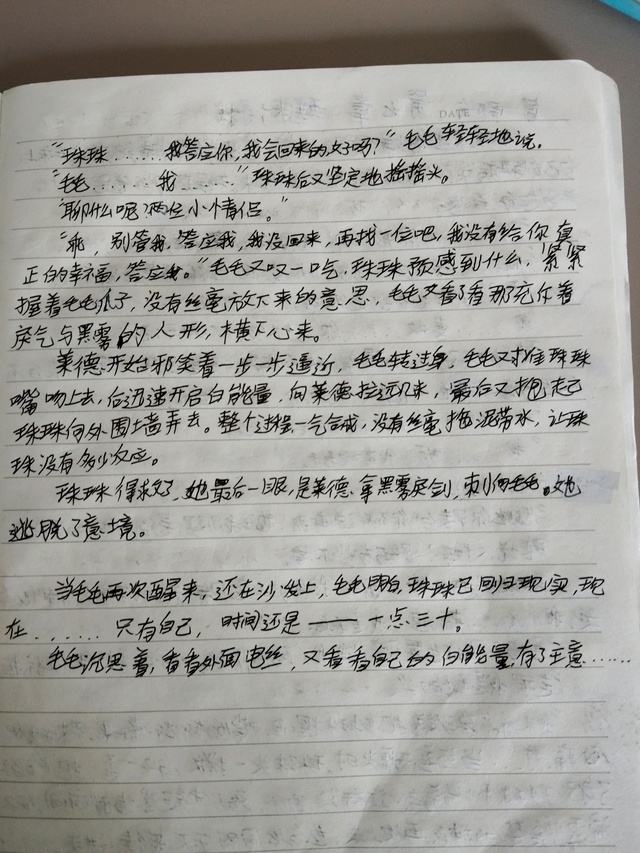 "珠珠……我答应你,我会回来的好吗?"毛毛轻轻地说。
"毛毛……我……"珠珠后又坚定地摇摇头。
"聊什么呢?两位小情侣。"
"乖,别管我,答应我,我没回来,再找一位吧,我没有给你真
正的幸福,答应我。"毛毛又叹一口气,珠珠预感到什么,紧紧
握着毛毛爪子,没有丝毫放下来的意思,毛毛又看了看那充斥着
戾气与黑雾的人形,横下心来。
莱德开始邪笑着一步一步逼近,毛毛转过身,毛毛又对准珠珠
嘴吻上去,后迅速开启白能量,向莱德拉远几米,最后又抱起
珠珠向外围墙弄去。整个过程一气合成,没有丝毫拖泥带水,让珠
珠没有多少反应。
珠珠得救了,她最后一眼,是莱德拿黑雾戾剑,刺向毛毛。她
逃脱了意境。
当毛毛再次醒来,还在沙发上,毛毛明白,珠珠已回归现实,现
在……只有自己,时间还是——十点三十。
毛毛沉思着,看看外面电丝,又看看自己的白能量,有了主意……